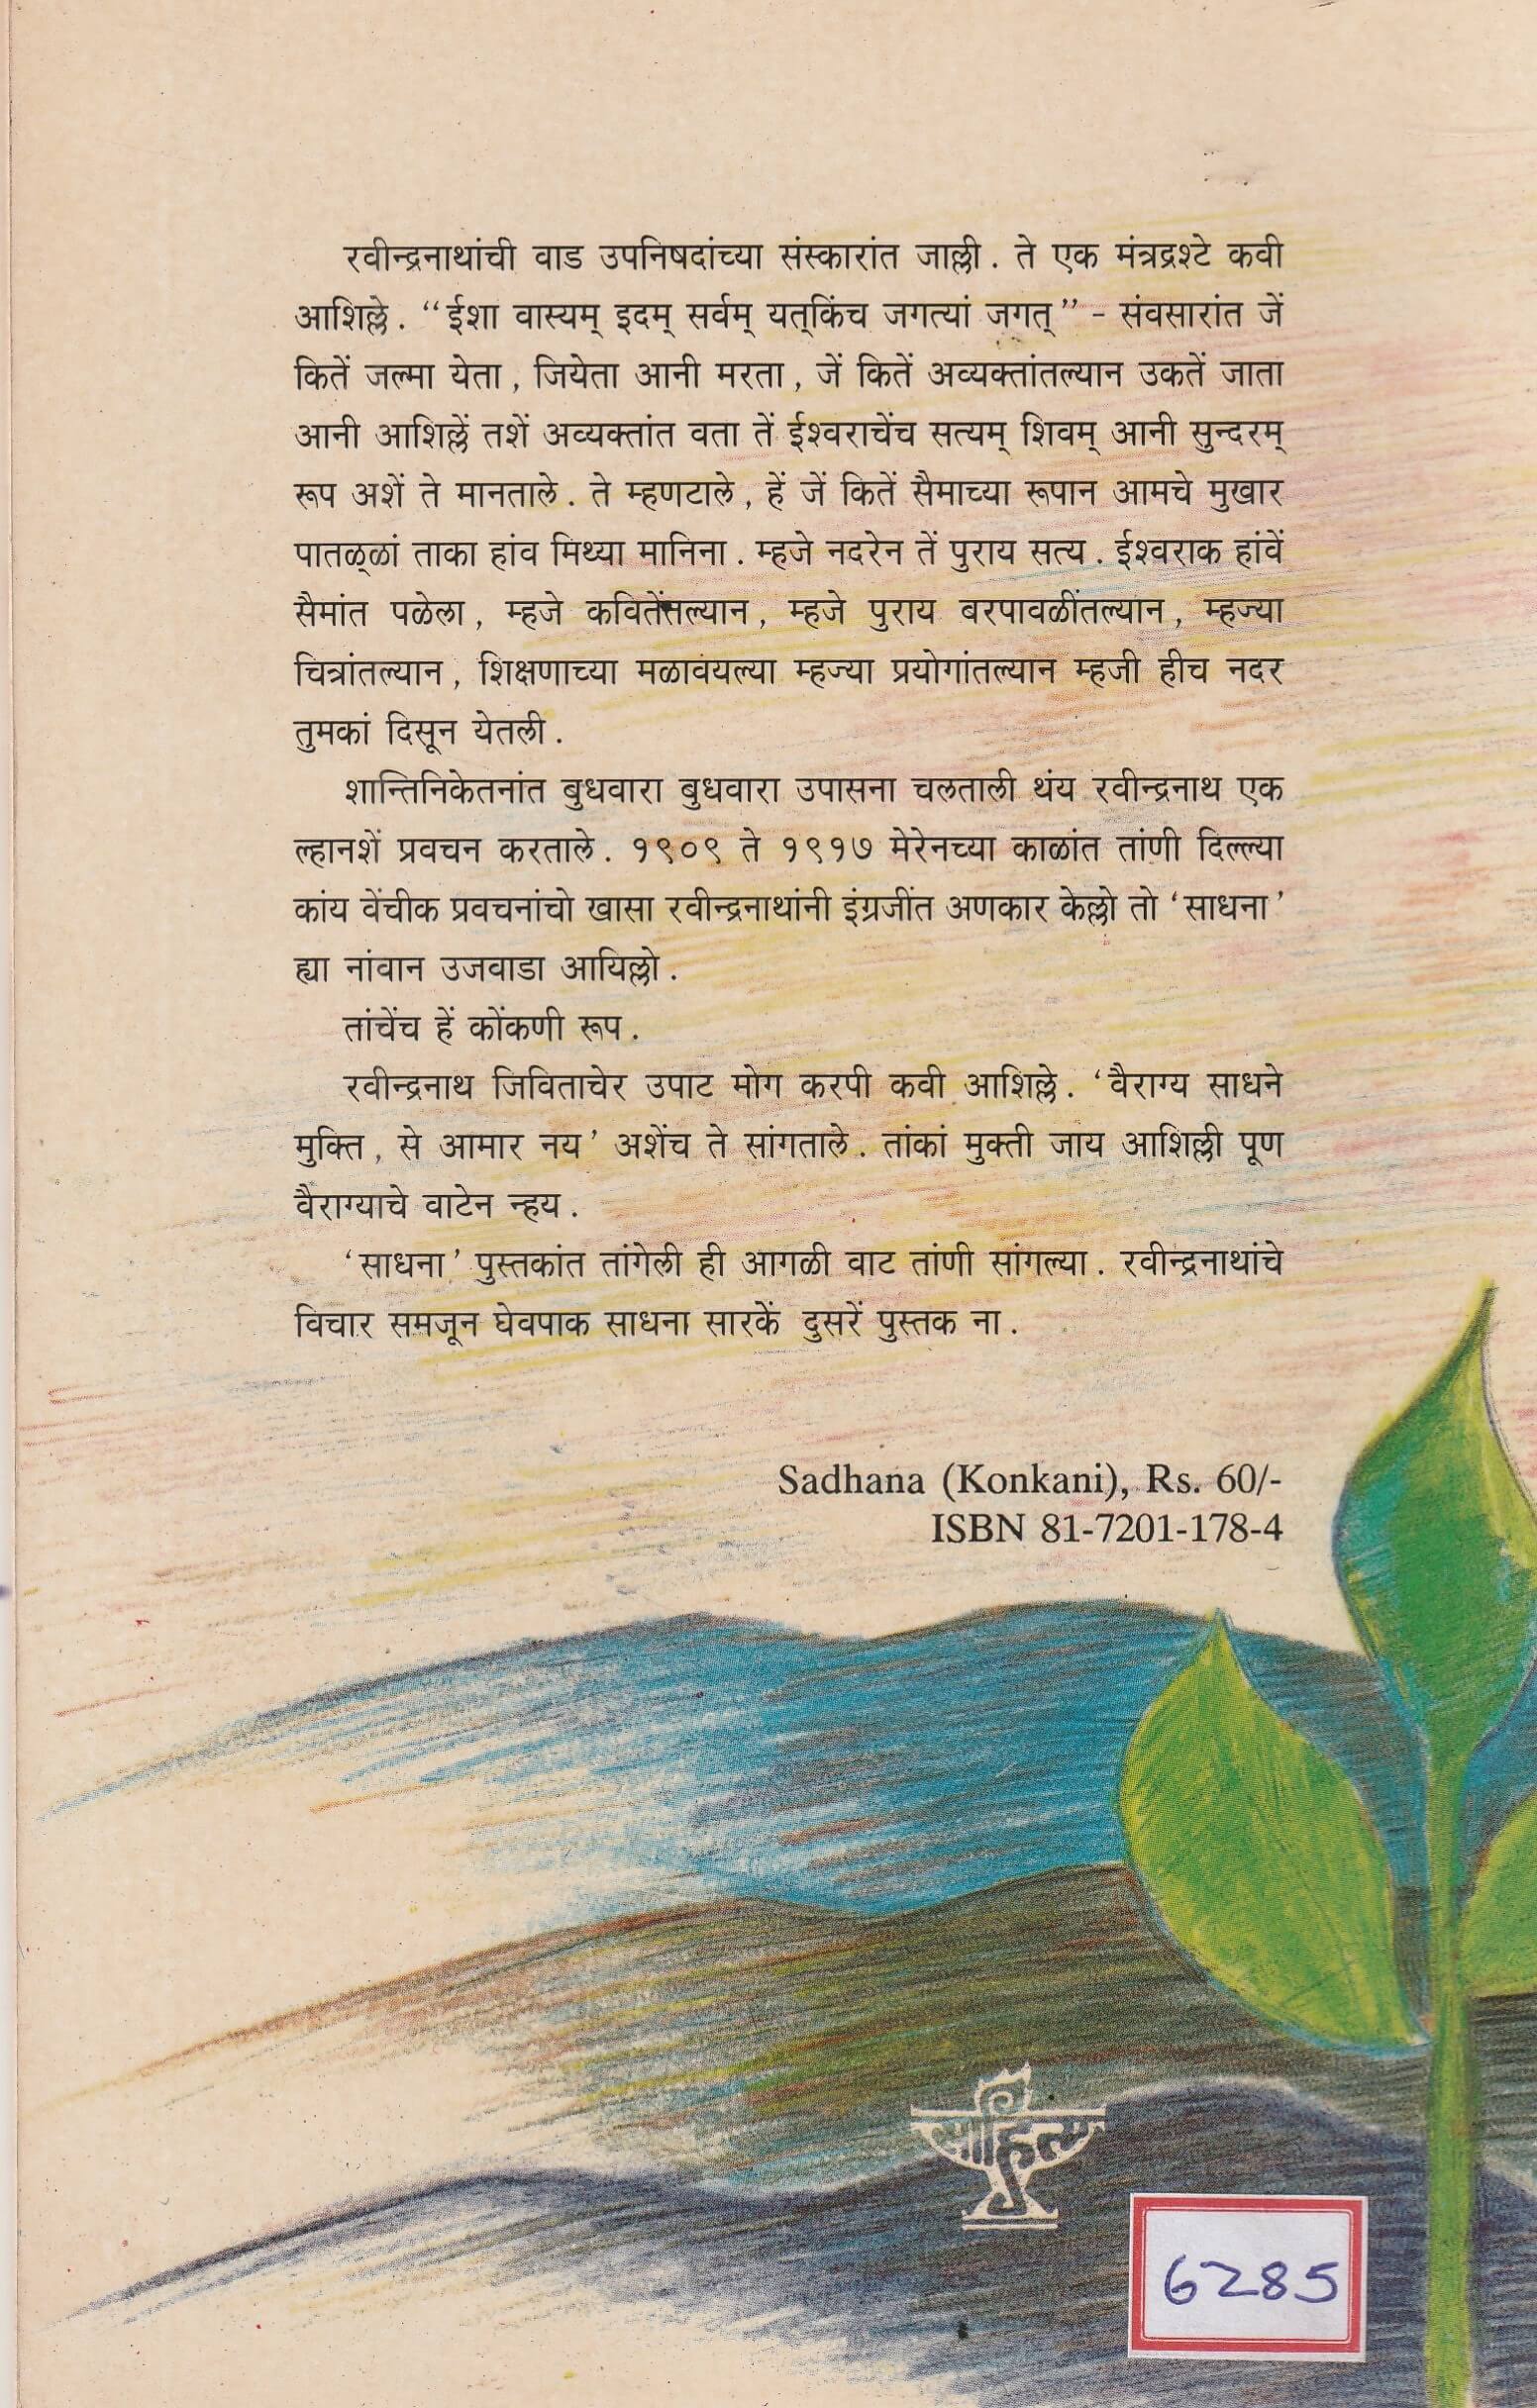 रवीन्द्रनाथांची वाड उपनिषदांच्या संस्कारांत जाल्ली. ते एक मंत्रद्रश्टे कवी
आशिल्ले. “ईशा वास्यम् इदम् सर्वम् यत्‌किंच जगत्यां जगत्” - संवसारांत जें
कितें जल्मा येता, जियेता आनी मरता, जें कितें अव्यक्तांतल्यान उकतें जाता
आनी आशिल्लें तशें अव्यक्तांत वता तें ईश्वराचेंच सत्यम् शिवम् आनी सुन्दरम्
रूप अशें ते मानताले. ते म्हणटाले, हें जें कितें सैमाच्या रूपान आमचे मुखार
पातळ्ळां ताका हांव मिथ्या मानिना. म्हजे नदरेन तें पुराय सत्य. ईश्वराक हांवें
सैमांत पळेला, म्हजे कवितेंतल्यान, म्हजे पुराय बरपावळींतल्यान, म्हज्या
चित्रांतल्यान, शिक्षणाच्या मळावयल्या म्हज्या प्रयोगांतल्यान म्हजी हीच नदर
तुमकां दिसून येतली.
शान्तिनिकेतनांत बुधवारा बुधवारा उपासना चलताली थंय रवीन्द्रनाथ एक
ल्हानशें प्रवचन करताले. १९०९ ते १९१७ मेरेनच्या काळांत तांणी दिल्ल्या
कांय वेंचीक प्रवचनांचो खासा रवीन्द्रनाथांनी इंग्रजींत अणकार केल्लो तो ‘साधना’
ह्या नांवान उजवाडा आयिल्लो.
तांचेंच हें कोंकणी रूप.
रवीन्द्रनाथ जिविताचेर उपाट मोग करपी कवी आशिल्ले. ‘वैराग्य साधने
मुक्ति, से आमार नय’ अशेंच ते सांगताले. तांकां मुक्ती जाय आशिल्ली पूण
वैराग्याचे वाटेन न्हय.
‘साधना’ पुस्तकांत तांगेली ही आगळी वाट तांणी सांगल्या. रवीन्द्रनाथांचे
विचार समजून घेवपाक साधना सारकें दुसरें पुस्तक ना.
Sadhana (Konkani), Rs. 60/-
ISBN 81-7201-178-4
साहित्य
6285